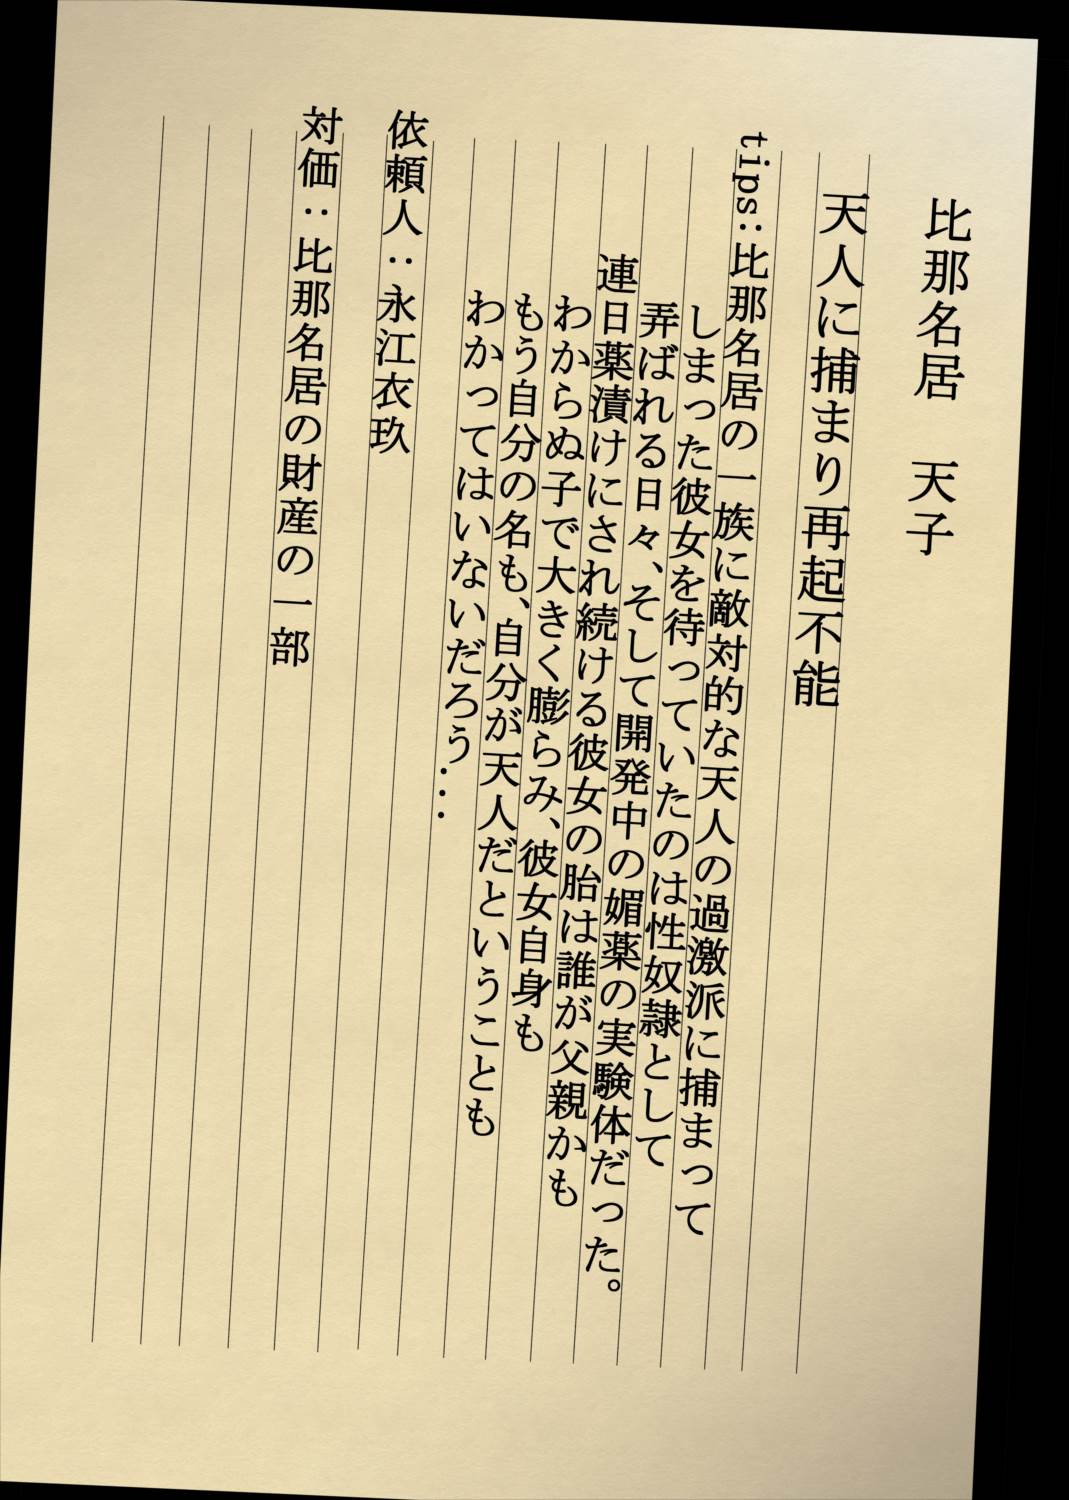 比那名居　天子
天人に捕まり再起不能
tips:比那名居の一族に敵対的な天人の過激派に捕まって
しまった彼女を待っていたのは性奴隷として
弄ばれる日々、そして開発中の媚薬の実験体だった。
連日薬漬けにされ続ける彼女の胎は誰が父親かも
わからぬ子で大きく膨らみ、彼女自身も
もう自分の名も、自分が天人だということも
わかってはいないだろう...
依頼人：永江衣玖
対価：比那名居の財産の一部